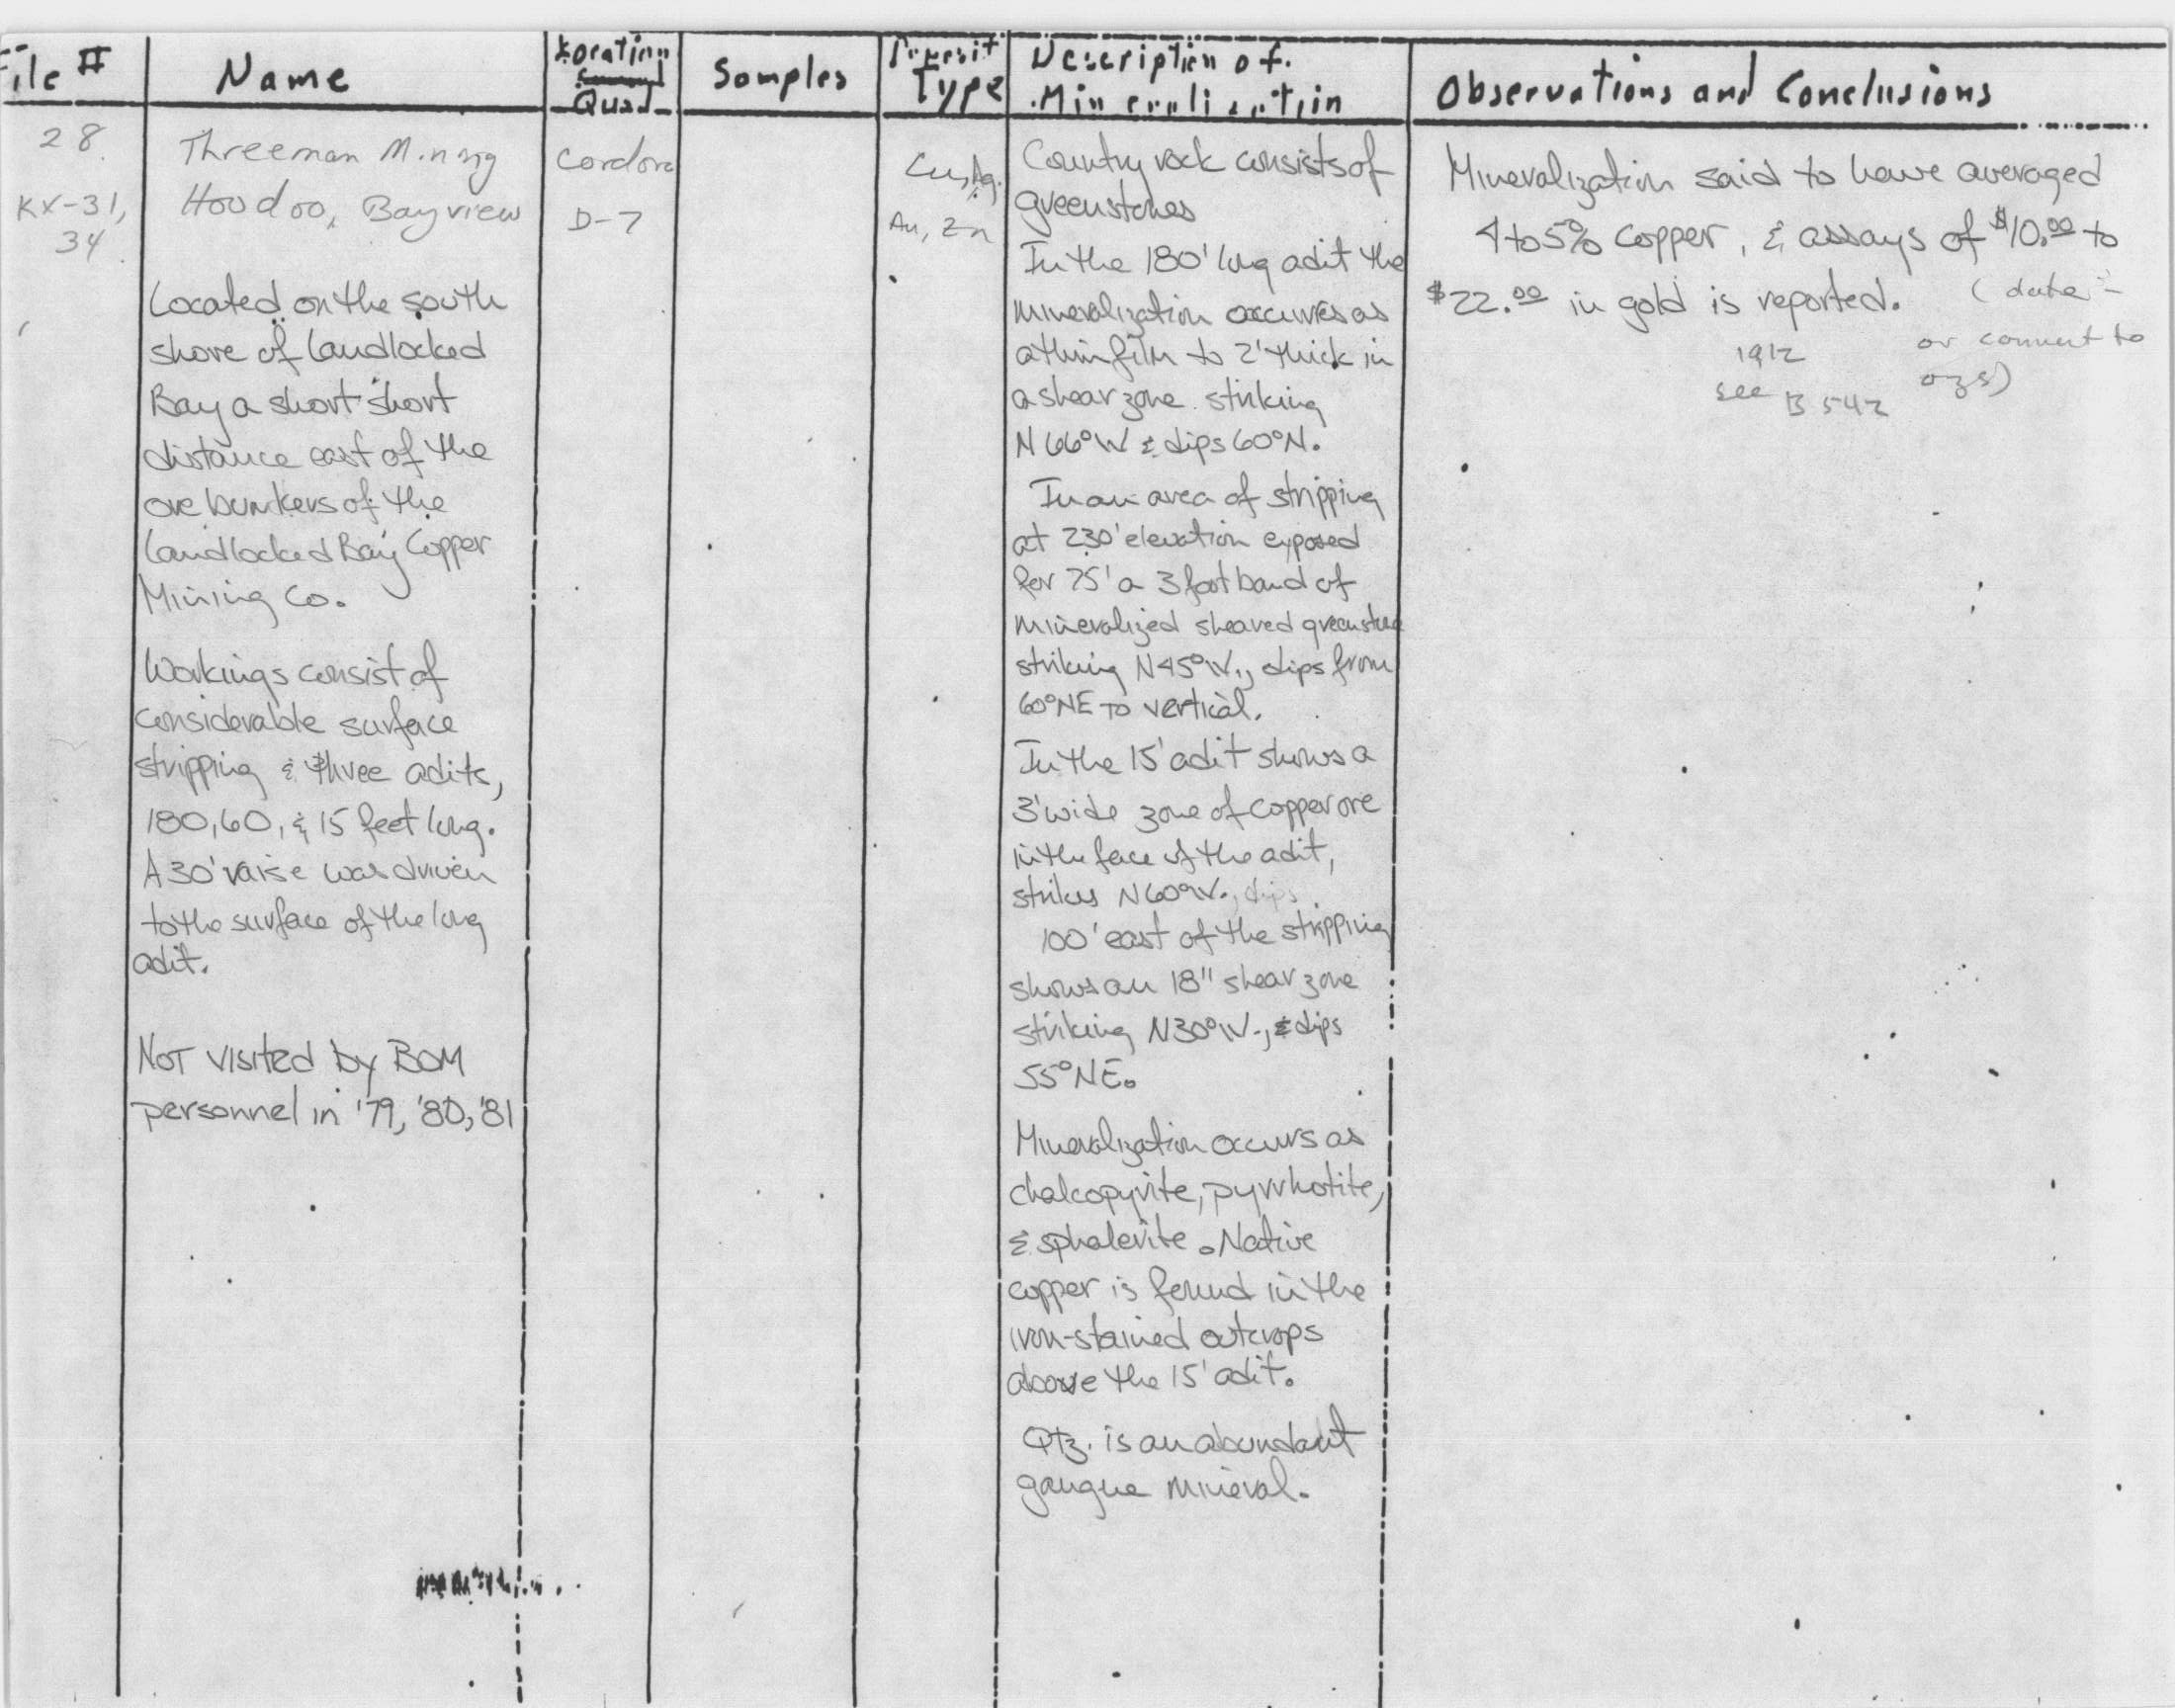 File #
Name
Location
Quad
Samples
Deposit
Type
Description of
Mineralization
Observations and Conclusions
28
KX-31,
34
Threeman Mining
Hoodoo, Bayview
Located on the south
shore of Landlocked
Bay a short short
distance east of the
ore bunkers of the
Landlocked Bay Copper
Mining Co.
Workings consist of
considerable surface
stripping & three adits,
180, 60, & 15 feet long.
A 30' raise was driven
to the surface of the long
adit.
NOT visited by BOM
personnel in '79, '80, '81
Cordova
D-7
Cu, Ag.
Au, Zn
Country rock consists of
greenstones
In the 180' long adit the
mineralization occurres as
a thin film to 2' thick in
a shear zone striking
N 66° W & dips 60° N.
In an area of stripping
at 230' elevation exposed
for 75' a 3 foot band of
mineralized sheared greenstone
striking N45°W., dips from
60°NE TO vertical.
In the 15' adit shows a
3' wide zone of copper ore
in the face of the adit,
strikes N60°W., dips
100' east of the stripping
shows an 18" shear zone
striking N30°W., & dips
55°NE.
Mineralization occurs as
chalcopyrite, pyrrhotite,
& sphalerite. Native
copper is found in the
iron-stained outcrops
above the 15' adit.
Qtz. is an abundant
gangue mineral.
Mineralization said to have averaged
4 to 5% copper, & assays of $10.00 to
$22.00 in gold is reported. (date -
or convert to
ozs)
1912
see B 542